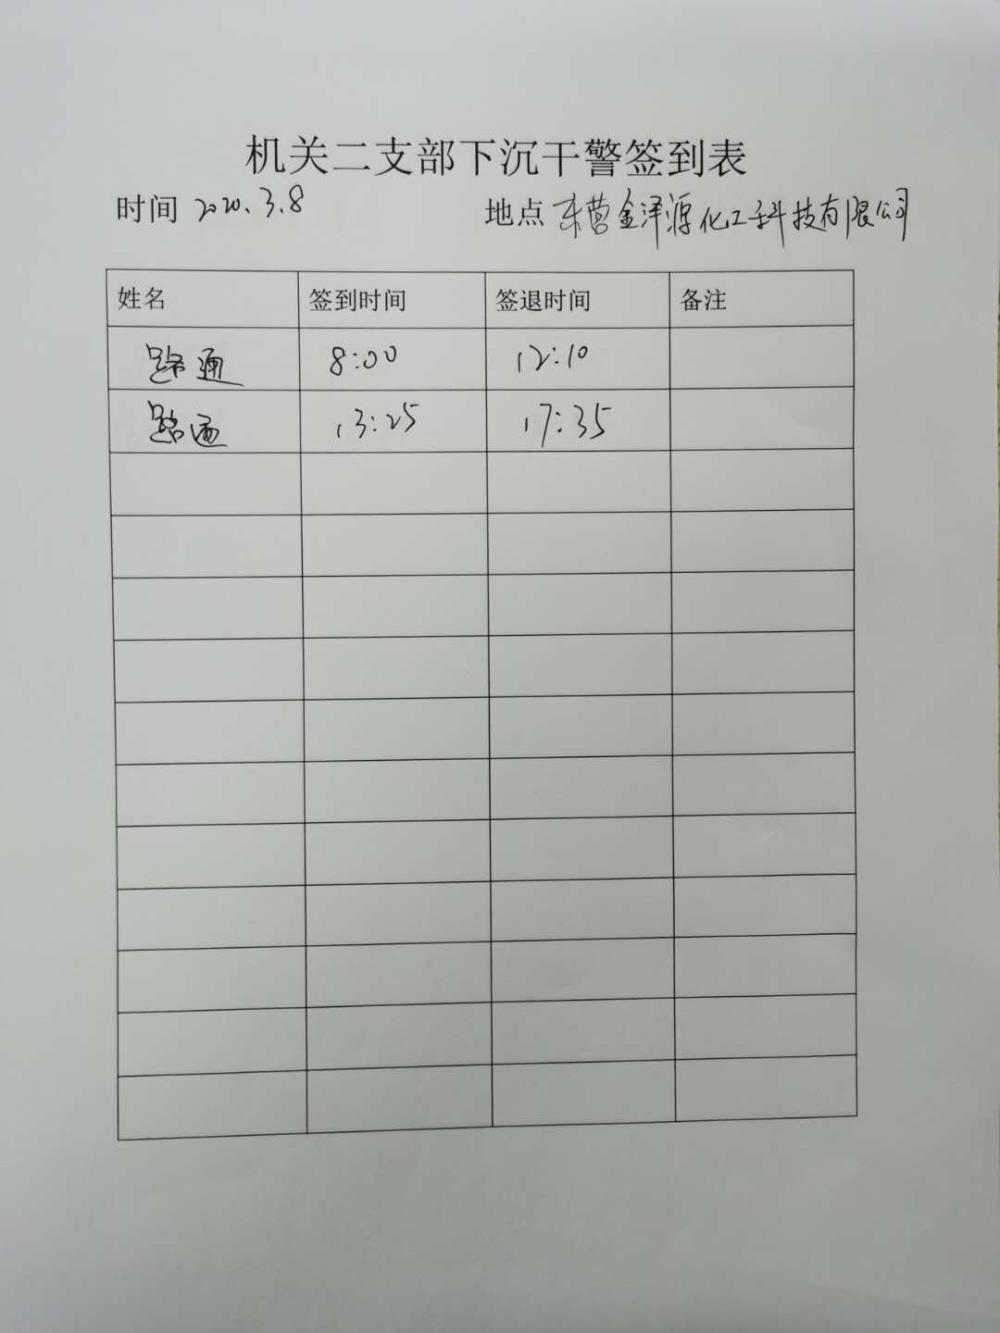 机关二支部下沉干警签到表
时间 2020.3.8 地点 东营金泽源化工科技有限公司
姓名 签到时间 签退时间 备注
路通 8:00 12:10
路通 13:25 17:35